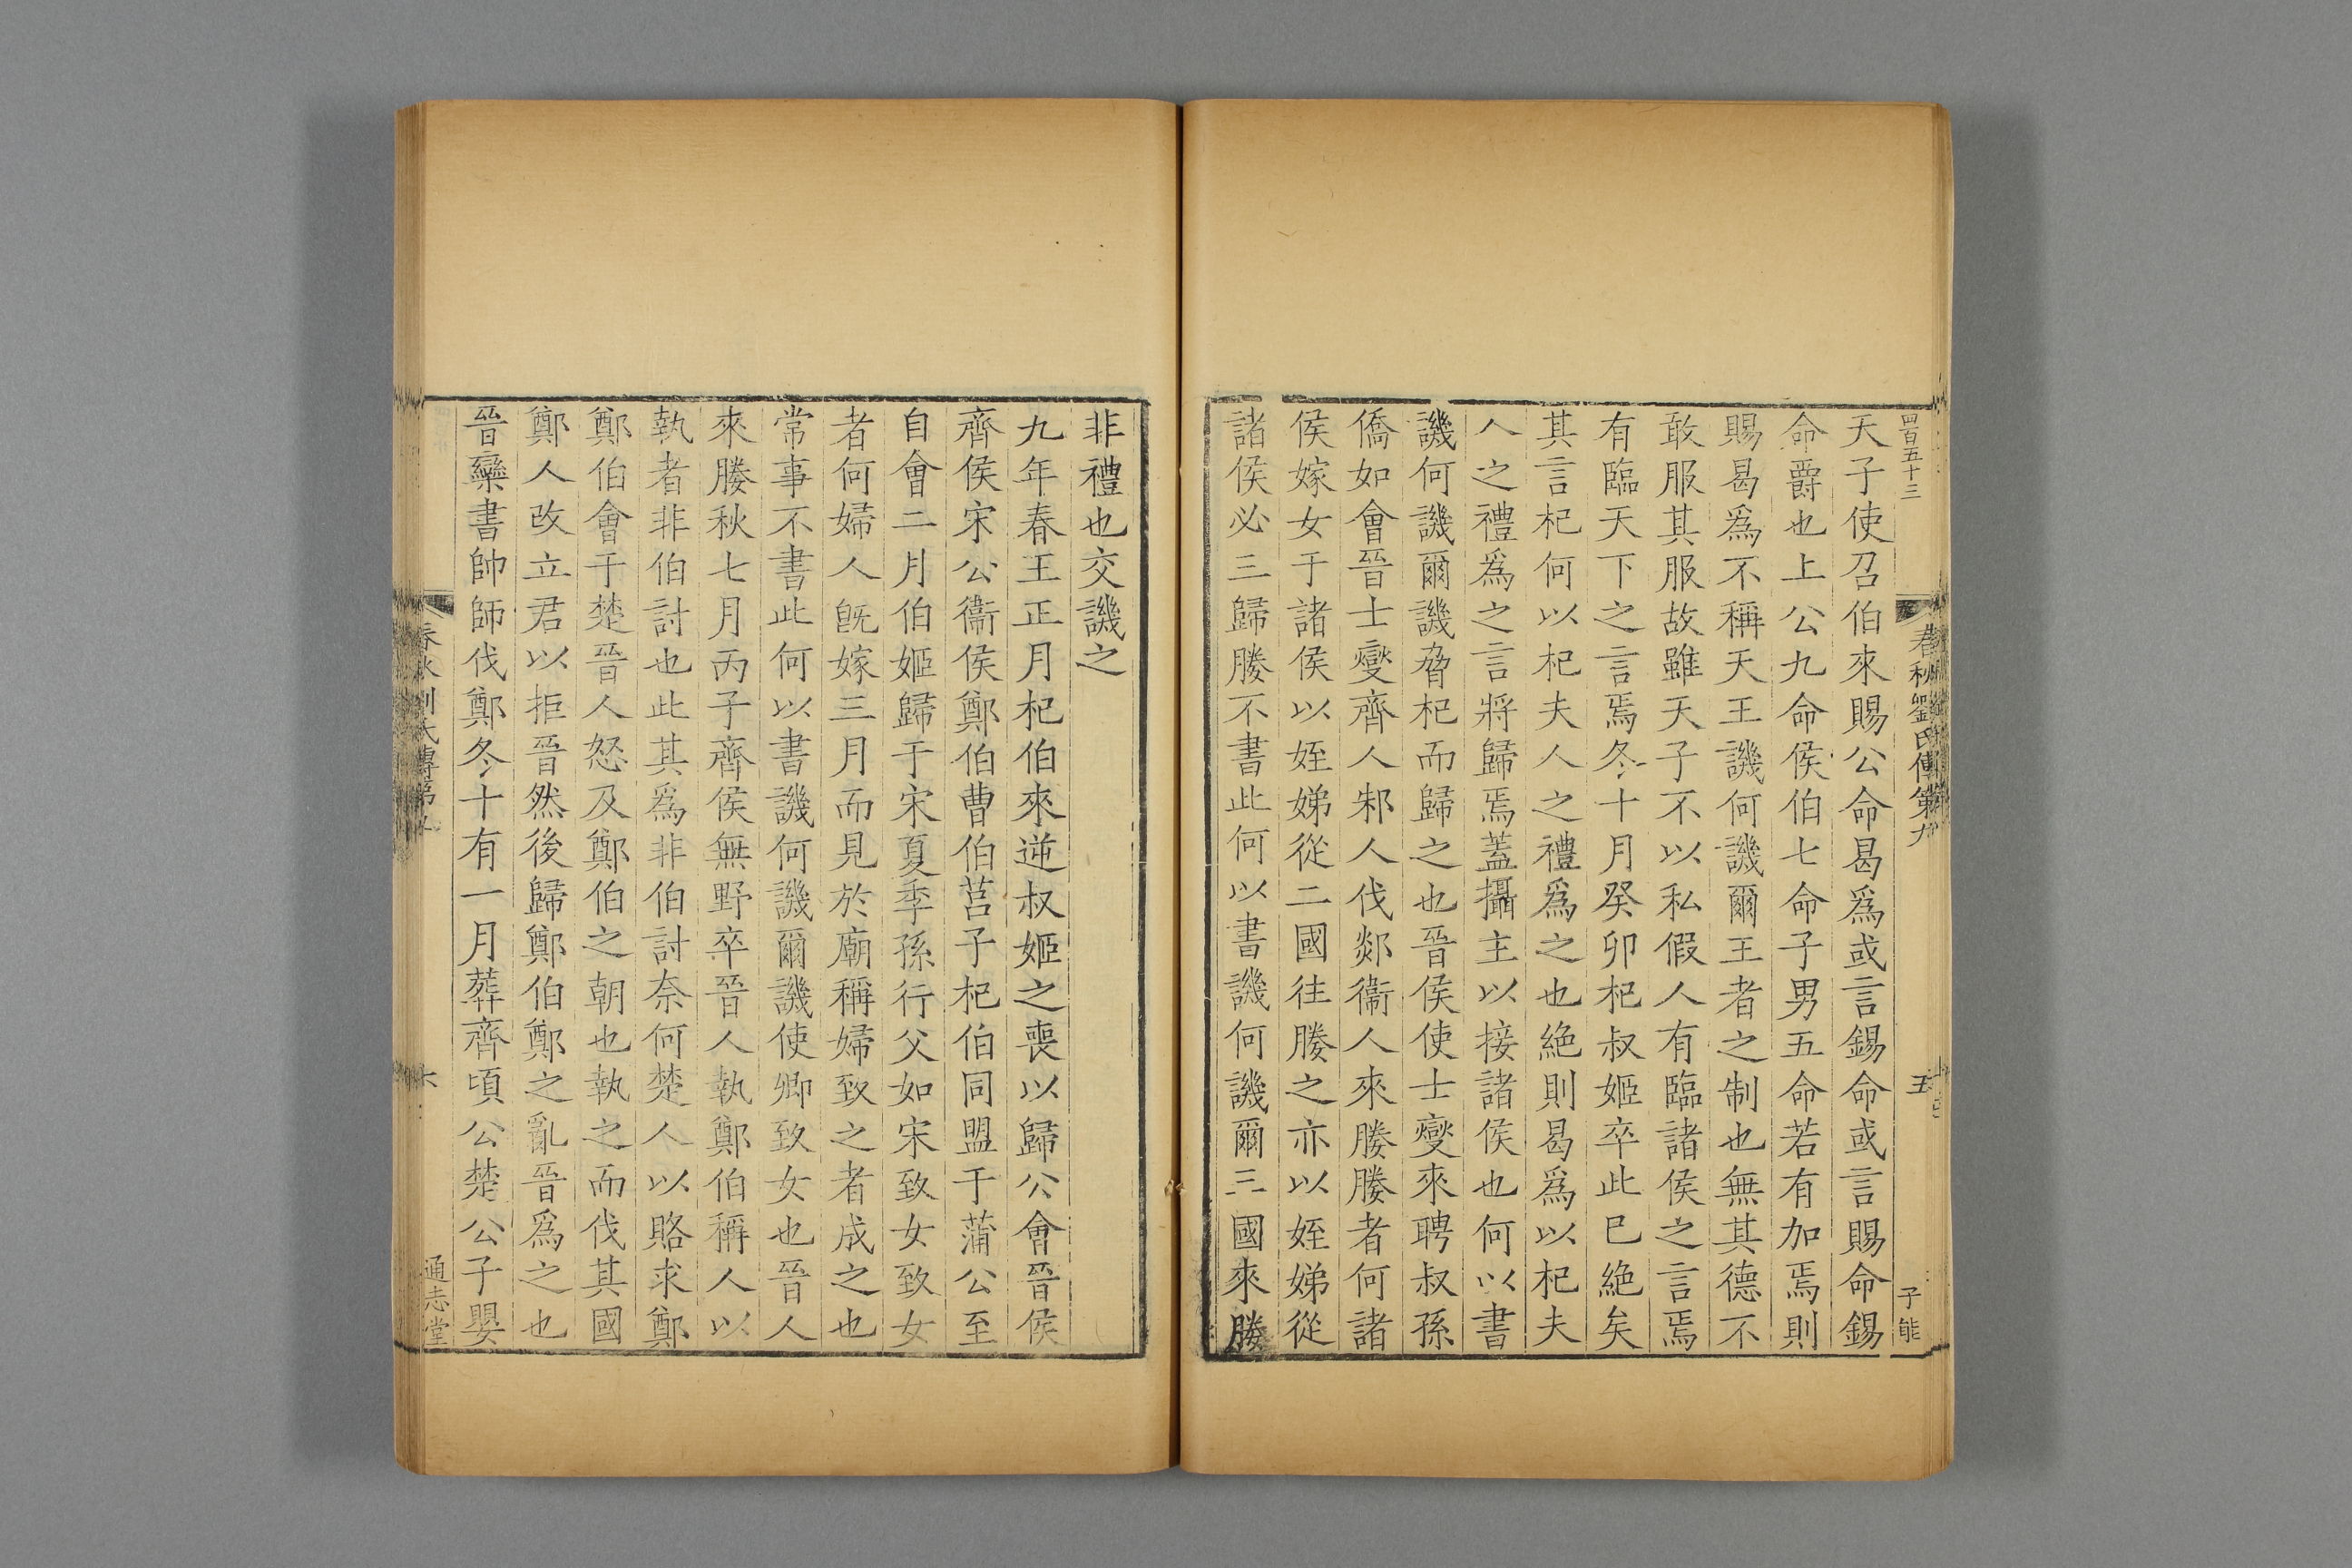 四百五十三
春秋劉氏傳第九
五
子能
天子使召伯來賜公命曷爲或言錫命或言賜命錫
命爵也上公九命侯伯七命子男五命若有加焉則
賜曷爲不稱天王譏何譏爾王者之制也無其德不
敢服其服故雖天子不以私假人有臨諸侯之言焉
有臨天下之言焉冬十月癸卯杞叔姬卒此巳絶矣
其言杞何以杞夫人之禮爲之也絶則曷爲以杞夫
人之禮爲之言將歸焉蓋攝主以接諸侯也何以書
譏何譏爾譏脅杞而歸之也晉侯使士燮來聘叔孫
僑如會晉士燮齊人邾人伐郯衞人來媵媵者何諸
侯嫁女于諸侯以姪娣從二國往媵之亦以姪娣從
諸侯必三歸媵不書此何以書譏何譏爾三國來媵
非禮也交譏之
九年春王正月杞伯來逆叔姬之喪以歸公會晉侯
齊侯宋公衞侯鄭伯曹伯莒子杞伯同盟于蒲公至
自會二月伯姬歸于宋夏季孫行父如宋致女致女
者何婦人旣嫁三月而見於廟稱婦致之者成之也
常事不書此何以書譏何譏爾譏使卿致女也晉人
來媵秋七月丙子齊侯無野卒晉人執鄭伯稱人以
執者非伯討也此其爲非伯討奈何楚人以賂求鄭
鄭伯會于楚晉人怒及鄭伯之朝也執之而伐其國
鄭人改立君以拒晉然後歸鄭伯鄭之亂晉爲之也
晉欒書帥師伐鄭冬十有一月葬齊頃公楚公子嬰
春秋劉氏傳第九
六
通志堂